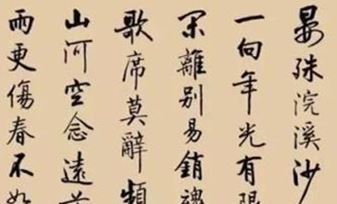 晏殊浣溪沙
一向年光有限
閑離別易銷魂
歌席莫辭頻
山河空念遠
雨更傷春不如